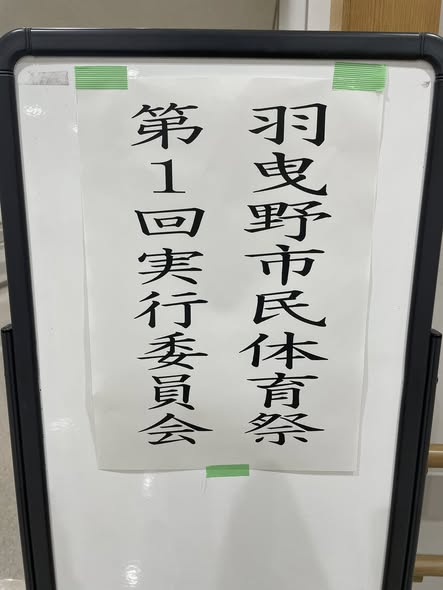 羽曳野市民体育祭
第1回実行委員会